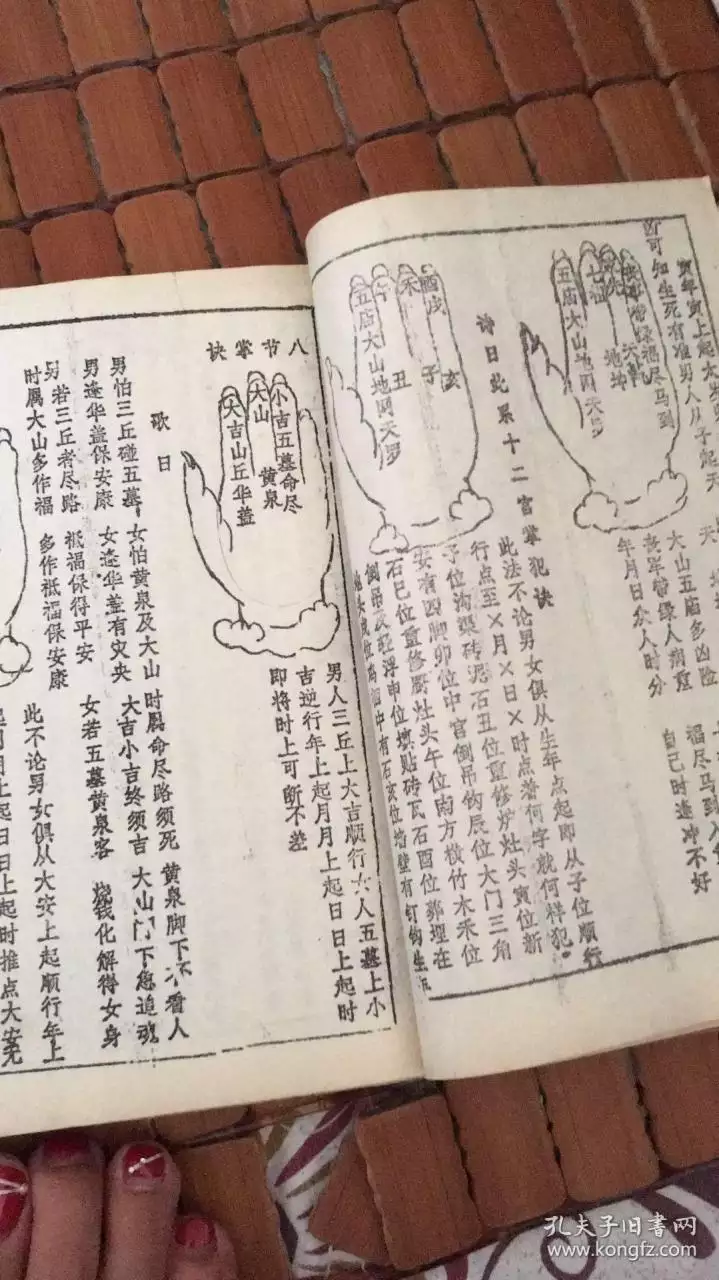 寅年寅上起
断可知生死有准男人从子起天
七
五庙大山地网天罗
地
天
大山五庙多凶险
丧车带绿人病重
年月日众人时分
福尽马到
自己时逢冲不好
诗曰此系十二宫掌犯诀
酉戌
未
午
亥
子
丑
五庙大山地网天罗
此法不论男女俱从生年点起即从子位顺行
行点至×月×日×时点着何字就何样犯。
子位沟渠砖泥石丑位重修炉灶头寅位新
安有四脚卯位中宫倒吊钩辰位大门三角
石巳位重修厨灶头午位南方横竹木未位
倒吊及轻浮申位填贴砖瓦石酉位葬埋在
有石亥位墙壁有钉钩生
八节掌诀
小吉五墓命尽
黄泉
大山
大吉山丘华盖
男人三丘上大吉顺行女人五墓上小
吉逆行年上起月月上起日日上起时
即将时上可断不差
歌曰
男怕三丘碰五墓 女怕黄泉及大山 时属命尽路须死 黄泉脚下不看人
男逢华盖保安康 女逢华盖有灾央 大吉小吉终须吉 大山门下急追魂
男若三丘者尽路 祗福保得平安 女若五墓黄泉客 烧钱化解得女身
时属大山多作福 多作祗福保安康
此不论男女俱从大安上起顺行年上
起月月上起日日上起时推点大安无
孔夫子旧书网
www.kongfz.com